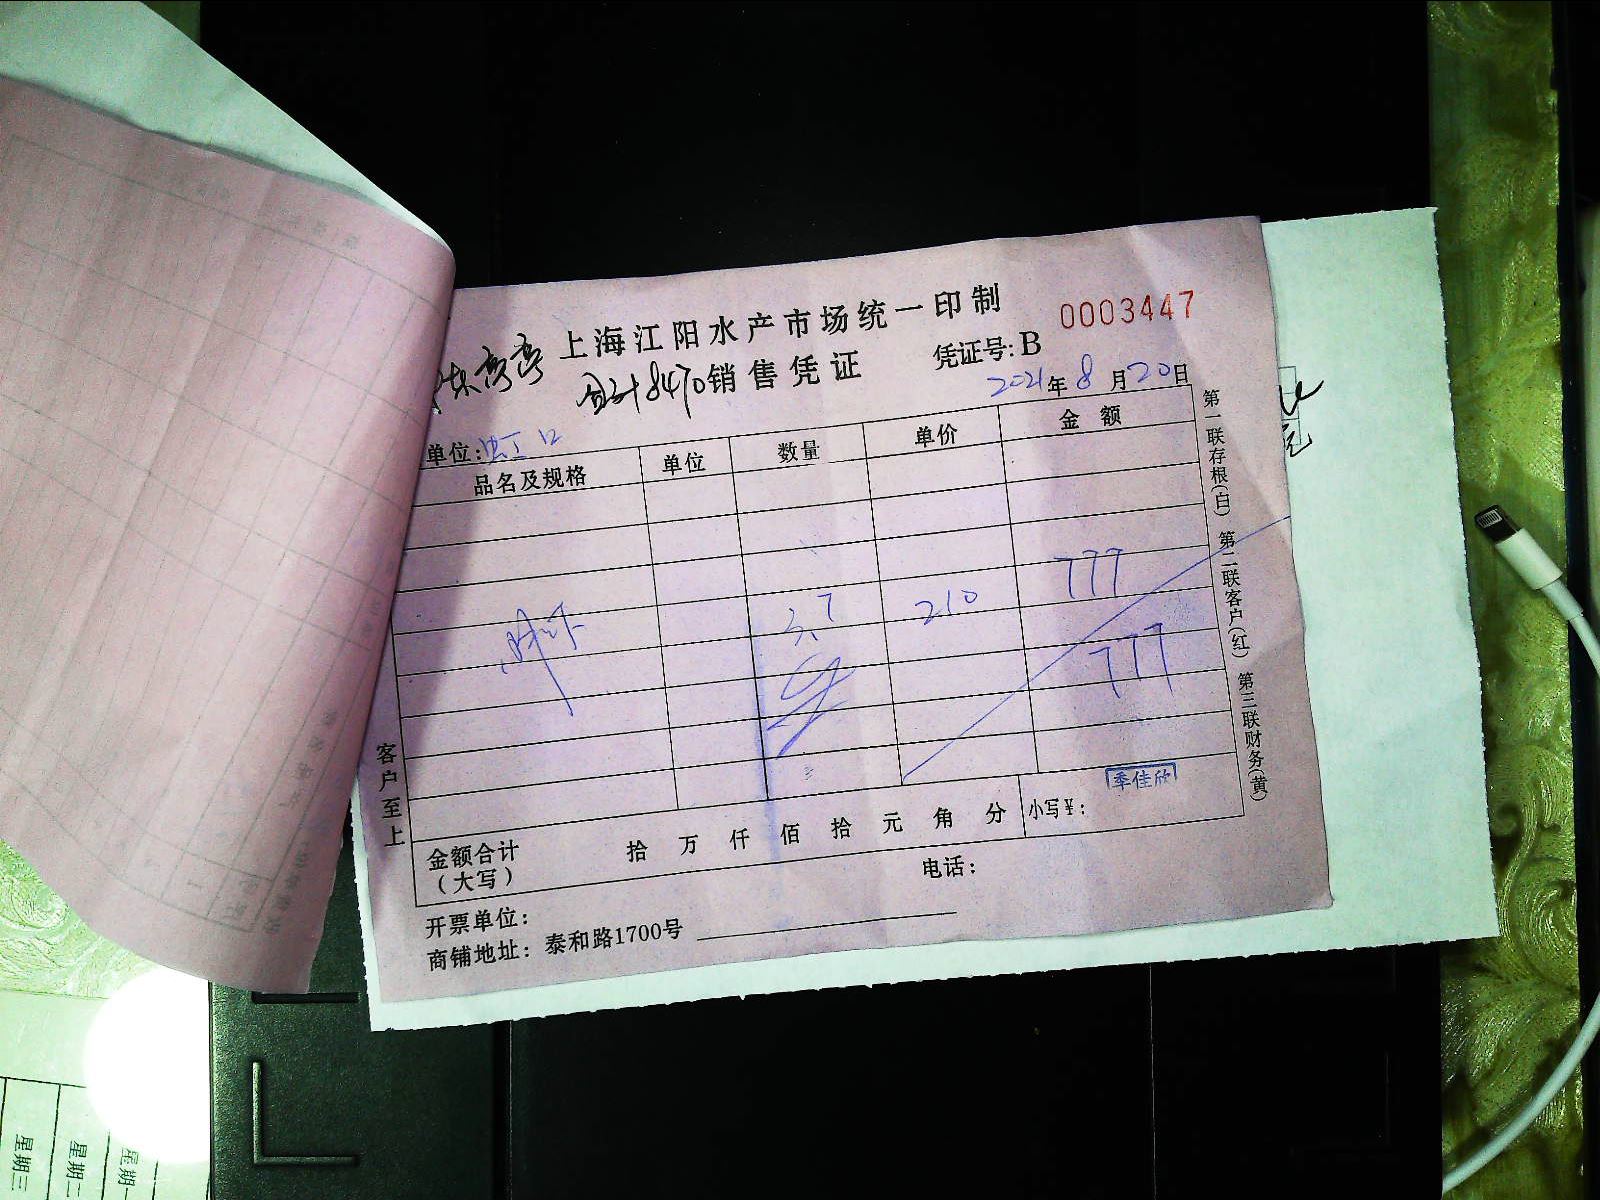 上海江阳水产市场统一印制
0003447
合计8470
销售凭证
凭证号: B
2021年8月20日
单位: 虹口
品名及规格 单位 数量 单价 金额
3.7 210 777
777
金额合计（大写） 拾 万 仟 佰 拾 元 角 分 小写¥:
季佳欣
开票单位: 电话:
商铺地址: 泰和路1700号
客户至上
第一联存根(白) 第二联客户(红) 第三联财务(黄)
星期三
星期二
星期一